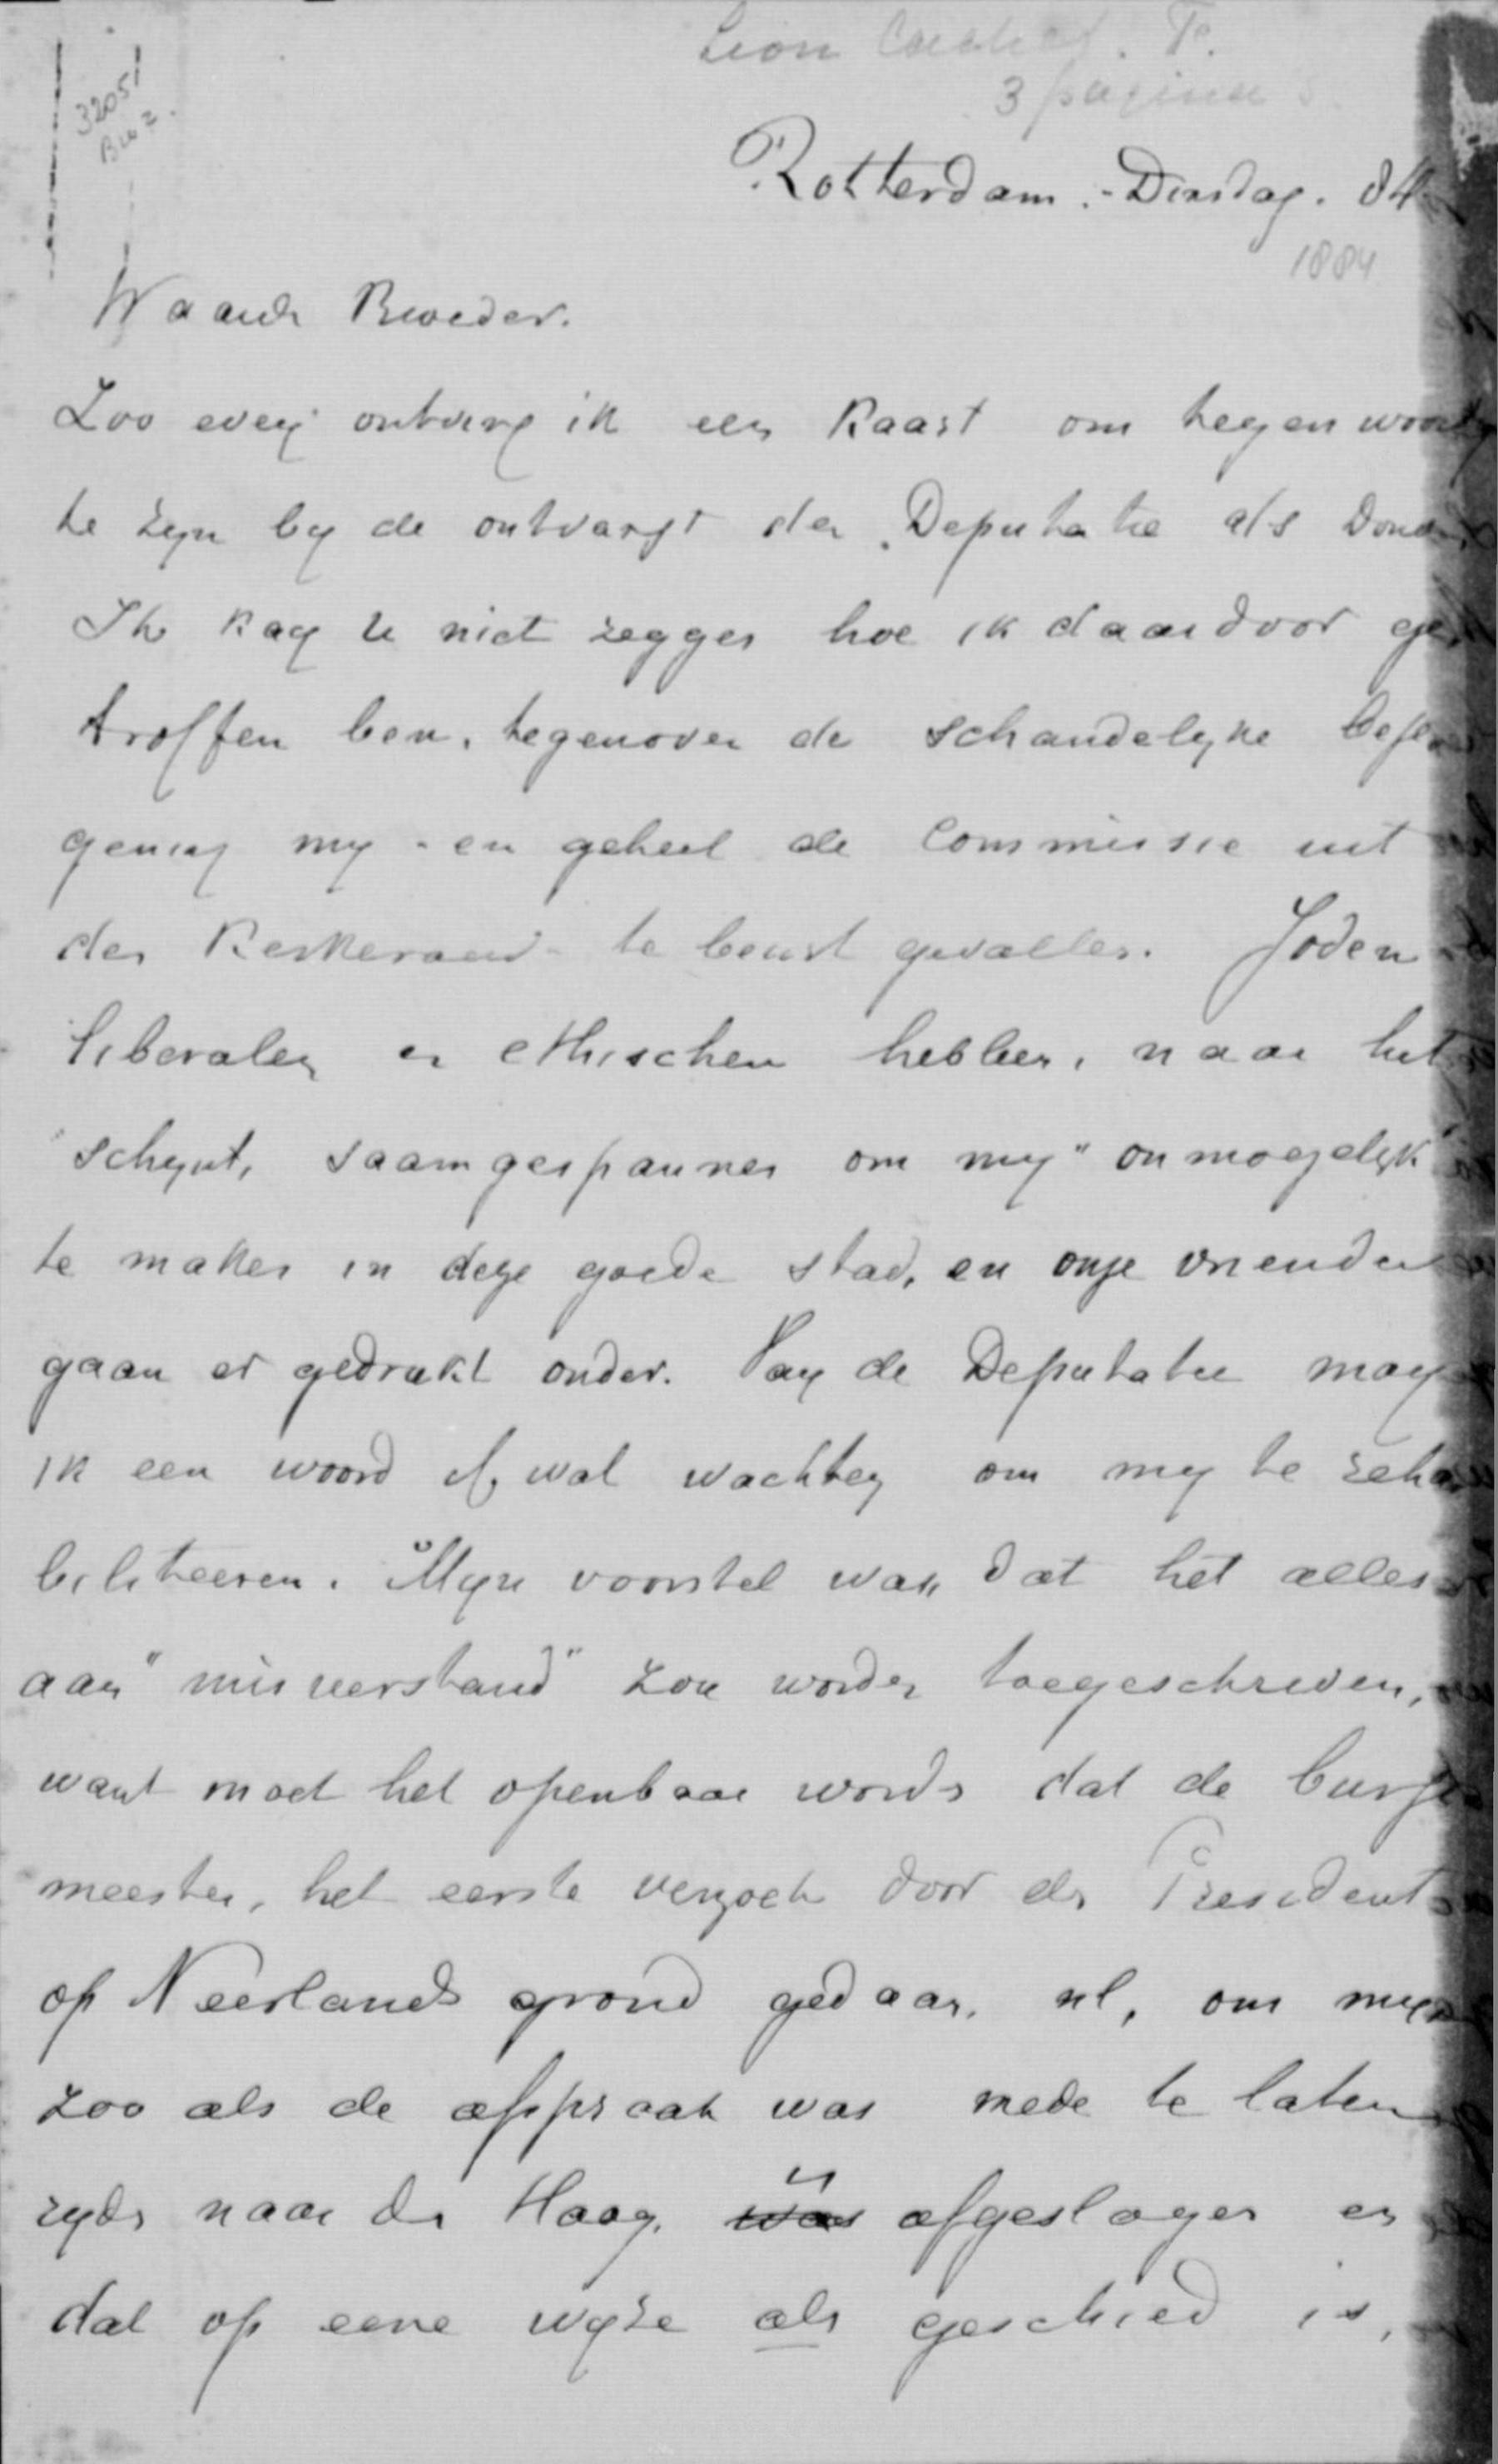 Lion Cachet. F.
3 pagina's.
32051
Rotterdam.- Dinsdag. 84
1884
Waarde Broeder.
Zoo even ontving ik een kaart om tegenwoordig
te zyn by de ontvangst der Deputatie als Dond
Ik kan U niet zeggen hoe ik daardoor ge-
troffen ben, tegenover de schandelyke beje
gening my - en geheel de Commissie uit
den Kerkeraad - te beurt gevallen. Joden
liberalen en ethischen hebben, naar het
schynt, saamgespannen om my "onmogelyk"
te maken in deze goede stad, en onze vrienden
gaan er gedrukt onder. Van de Deputatie mag
ik een woord of wat wachten om my te reha
biliteeren. Myn voorstel was dat het alles
aan "misverstand" zou worden toegeschreven,
want moet het openbaar worden dat de burge
meester, het eerste verzoek door den President
op Neerlands grond gedaan, nl, om myn
zoo als de afspraak was mede te laten
ryden naar den Haag, was is afgeslagen en
dat op eene wyze als geschied is,